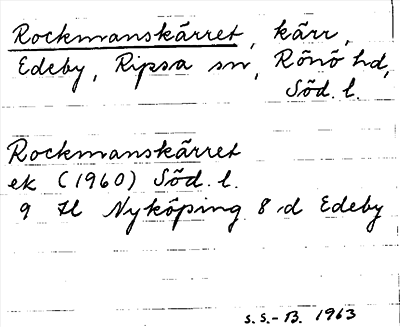 Rockmanskärret, kärr,
Edeby, Ripsa sn, Rönö hd,
Söd. l.
Rockmanskärret
ek (1960) Söd. l.
9 H Nyköping 8 d Edeby
S.S.-B. 1963